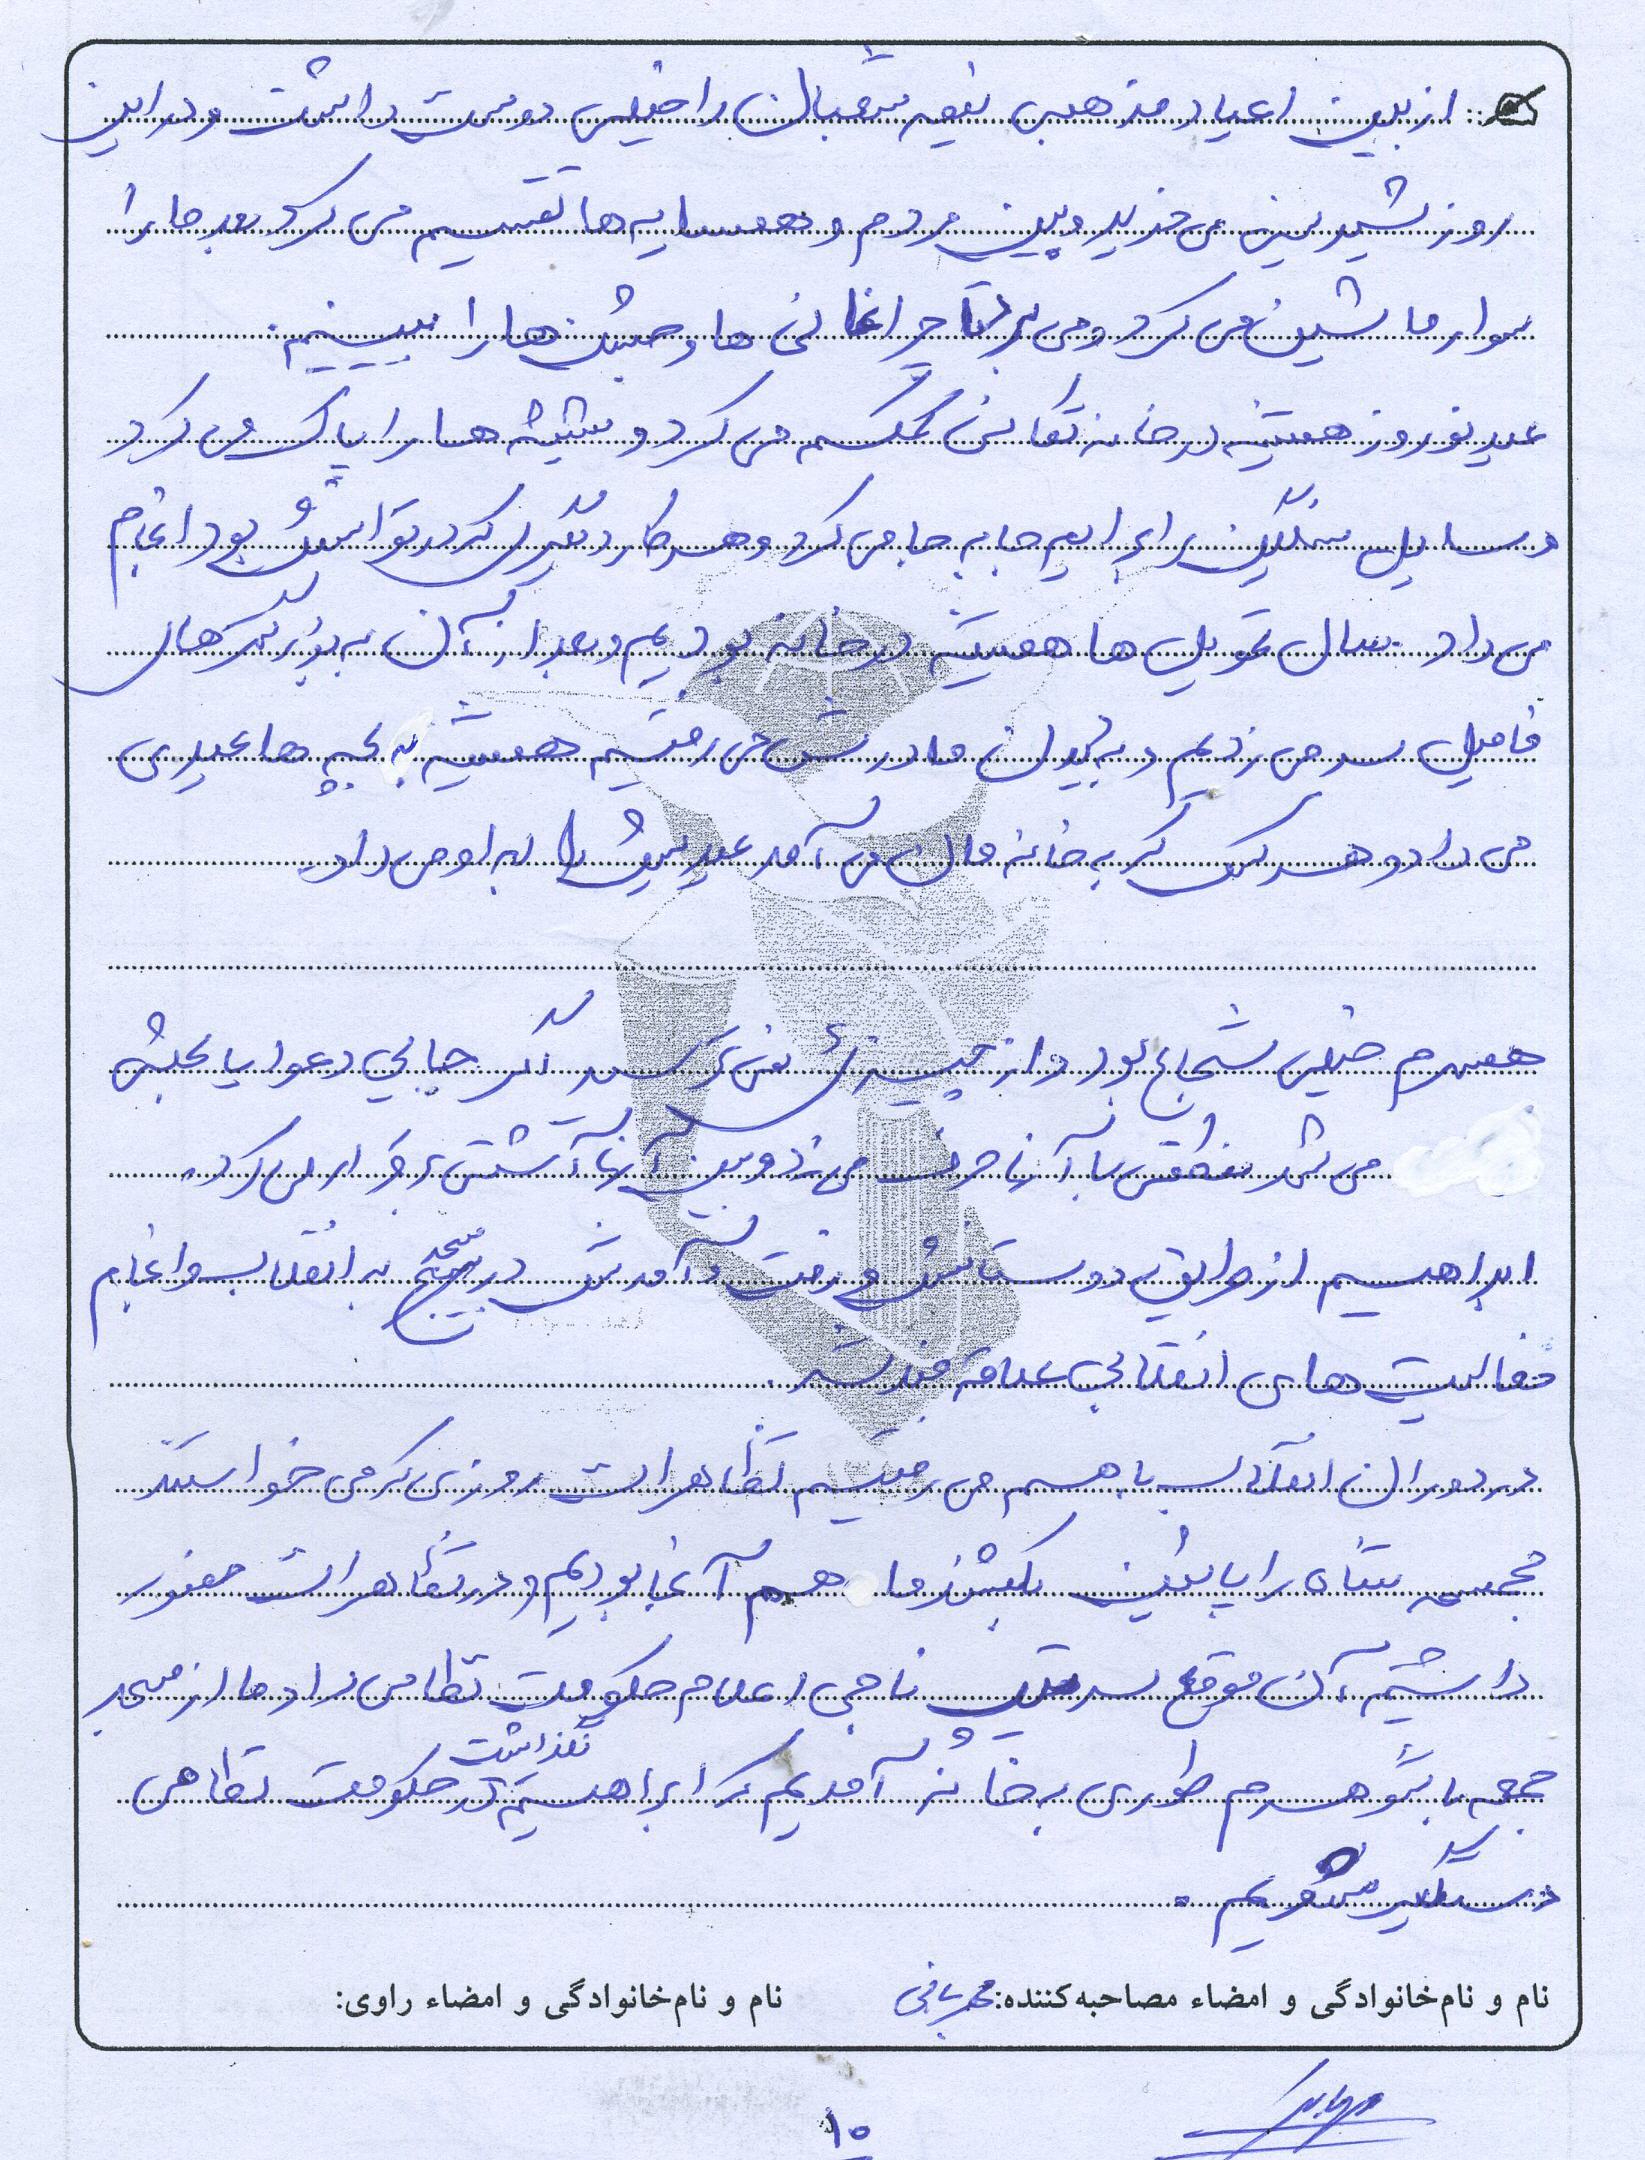 از بین اعیاد مذهبی نیمه شعبان را خیلی دوست داشت و در این
روز شیرینی می خرید و بین مردم و همسایه ها تقسیم می کرد بعد ما را
سوار ماشین می کرد و می برد تا چراغانی ها و جشن ها را ببینیم.
عید نوروز همیشه در خانه تکانی کمکم می کرد و شیشه ها را پاک می کرد
وسایل سنگین را برایم جا به جا می کرد و هر کار دیگری که در توانش بود انجام
می داد. سال تحویل ها همیشه در خانه بودیم و بعد از آن به بزرگترهای
فامیل سر می زدیم و به دیدن مادرش می رفتیم همیشه به بچه ها عیدی
می داد و هر کس که به خانه مان می آمد عیدیش را به او می داد.
همسرم خیلی شجاع بود و از چیزی نمی ترسید اگر جایی دعوا یا بحثی
می شد منطقی با آنها حرف می زد و بین آنها آشتی برقرار می کرد.
ابراهیم از طریق دوستانش و رفت و آمدش در مسجد به انقلاب و انجام
فعالیت های انقلابی علاقه مند شد.
در دوران انقلاب با هم می رفتیم تظاهرات روزی که می خواستند
مجسمه شاه را پائین بکشند ما هم آنجا بودیم و در تظاهرات حضور
داشتیم آن موقع سرتیپ ناجی اعلام حکومت نظامی داد ما از مسجد
جمعه با شوهرم طوری به خانه آمدیم که ابراهیم نگذاشت در حکومت نظامی
دستگیر شویم.
نام و نام‌خانوادگی و امضاء مصاحبه‌کننده:
نام و نام‌خانوادگی و امضاء راوی:
۱۰